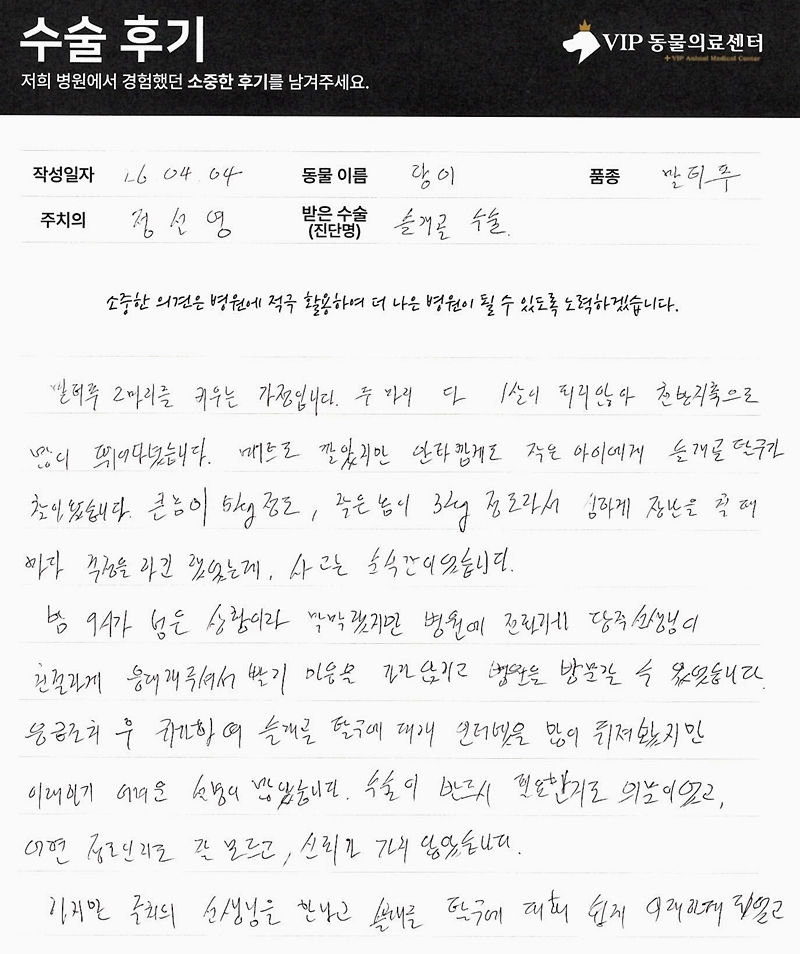 수술 후기
VIP 동물의료센터
+ VIP Animal Medical Center
저희 병원에서 경험했던 소중한 후기를 남겨주세요.
작성일자 26 04. 04 동물 이름 랑이 품종 말티푸
주치의 정선영 받은 수술 (진단명) 슬개골 수술.
소중한 의견은 병원에 적극 활용하여 더 나은 병원이 될 수 있도록 노력하겠습니다.
말티푸 2마리를 키우는 가정입니다. 두 마리 다 1살이 되지않아 천방지축으로
많이 뛰어다녔습니다. 매트도 깔았지만 안타깝게도 작은 아이에게 슬개골 탈구가
찾아왔습니다. 큰놈이 5kg정도, 작은놈이 3kg 정도라서 심하게 장난을 칠 때
마다 걱정을 하긴 했었는데, 사고는 순식간이었습니다.
밤 9시가 넘은 상황이라 막막했지만 병원에 전화하니 당직선생님이
친절하게 응대해주셔서 빨리 마음을 병원을 방문할 수 있었습니다.
응급조치 후 귀가하여 슬개골 탈구에 대해 인터넷을 많이 뒤져봤지만
이해하기 어려운 설명이 많았습니다. 수술이 반드시 필요한지도 의문이었고,
어떤 정도인지도 잘 모르고, 신뢰가 가지 않았습니다.
하지만 주치의 선생님을 만나고 탈구에 대해 쉽게 이해하게 되었고